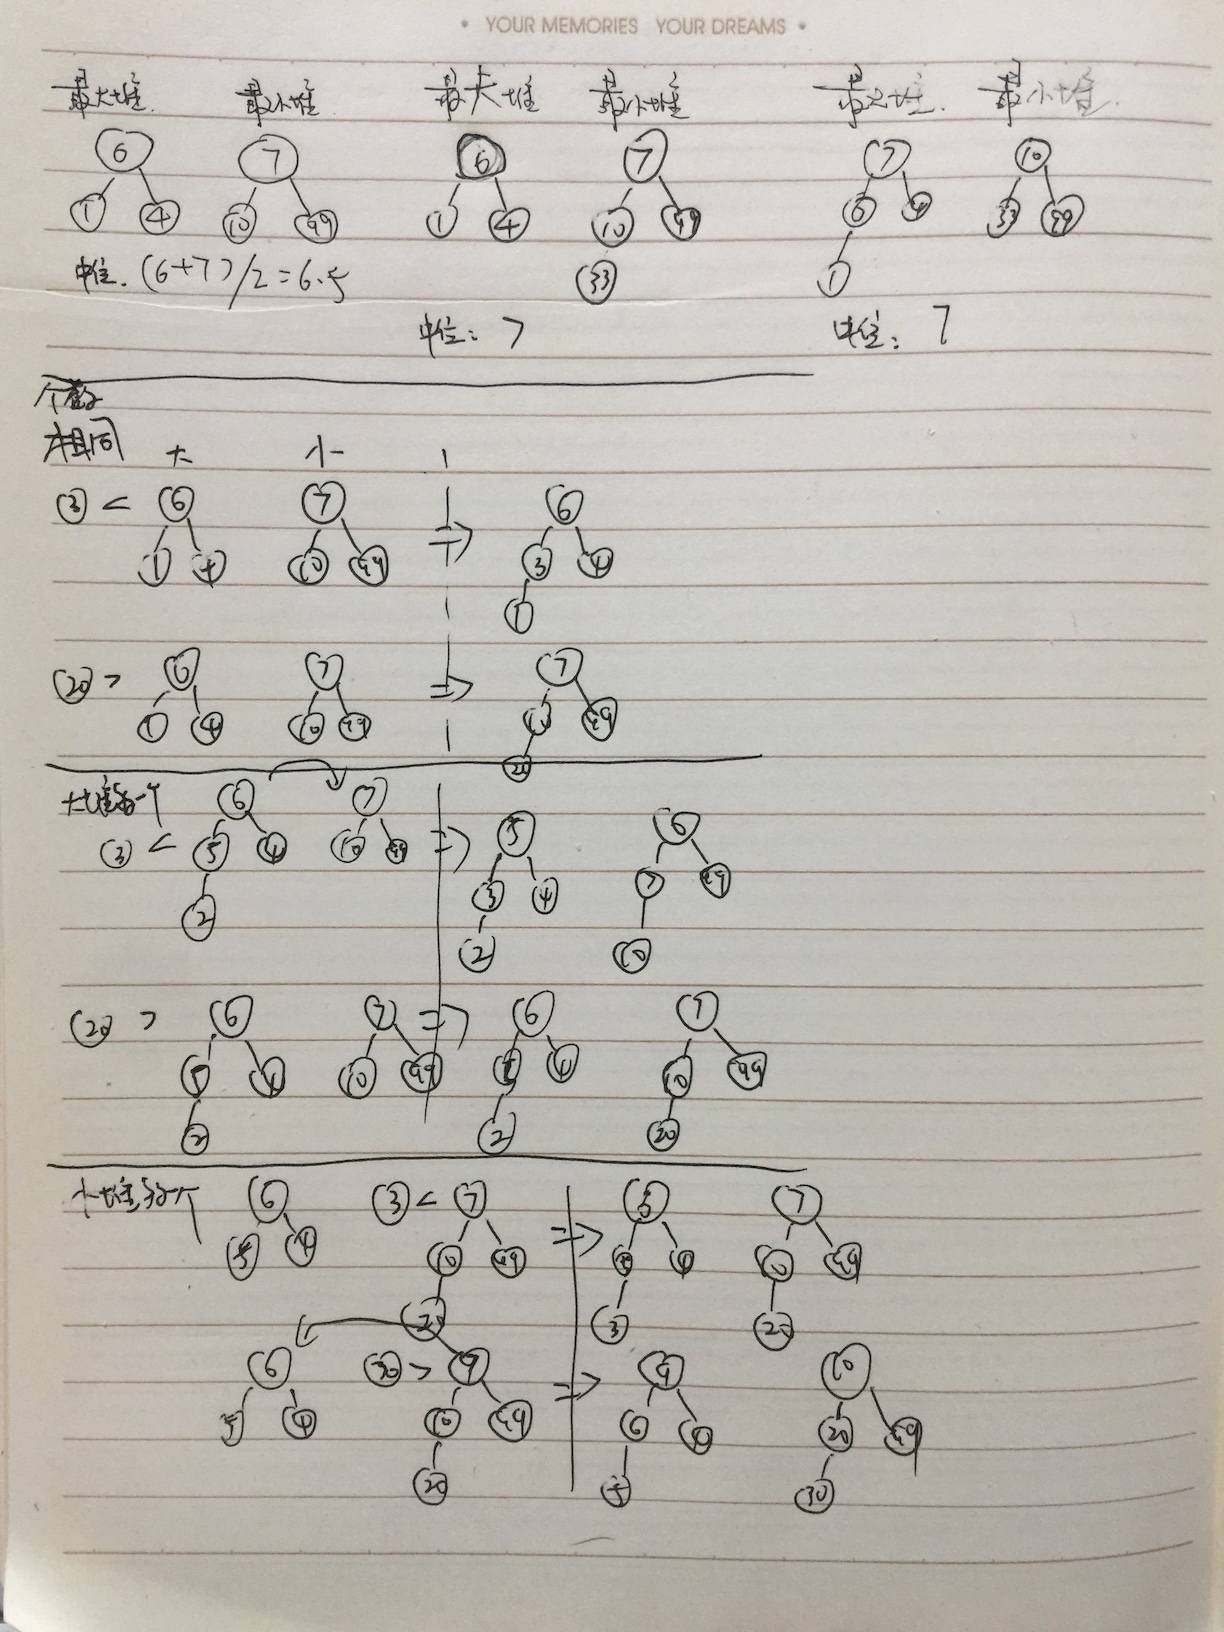 • YOUR MEMORIES YOUR DREAMS •
最大堆 最小堆 最大堆 最小堆 最大堆 最小堆
6 7 6 7 7 10
1 4 10 99 1 4 10 99 6 4 33 99
33 1
中位. (6+7)/2=6.5
中位: 7 中位: 7
个数
相同 大 小
3 < 6 7 => 6
1 4 10 99 3 4
1
20 > 6 7 => 7
1 4 10 99 10 99
20
大堆多一个 6 7
3 < 5 4 10 99 => 5 6
2 3 4 7 99
2 10
20 > 6 7 => 6 7
5 4 10 99 5 4 10 99
2 2 20
小堆多一个 6 3 < 7 => 6 7
5 4 10 99 4 10 99
20 3 20
6 30 > 7 => 7 10
5 4 10 99 6 20 99
20 5 30